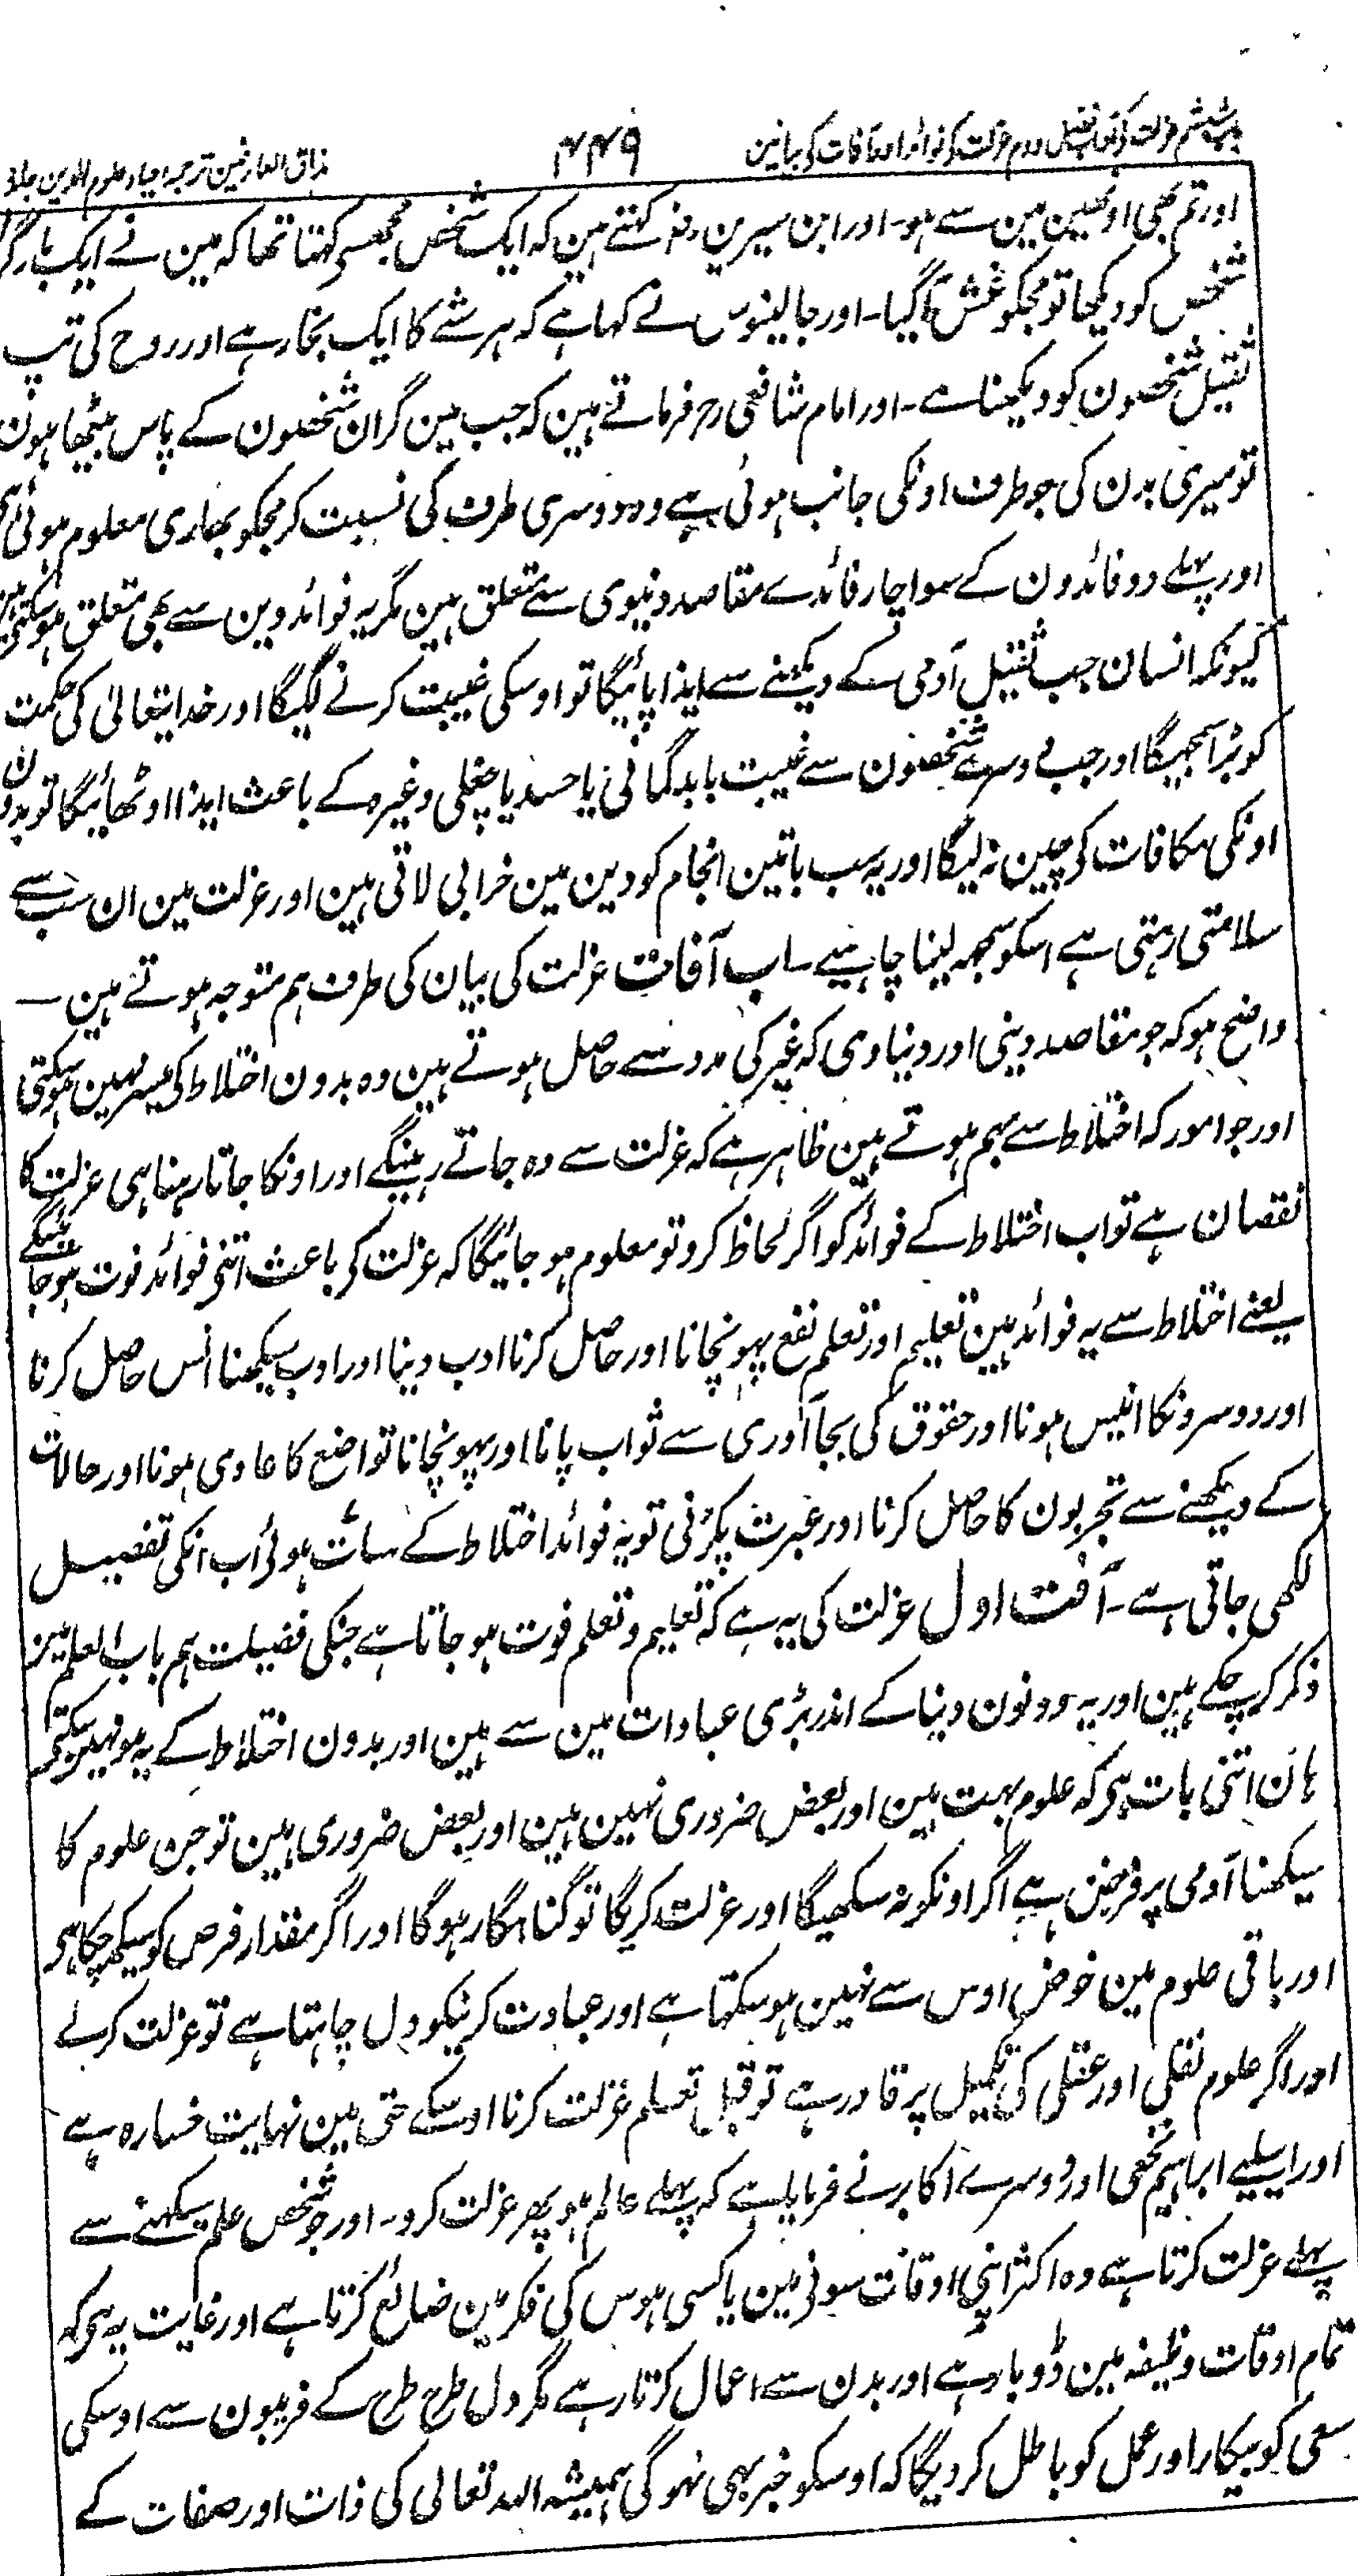 باب ششم عزلت کے آداب فصل دوم عزلت کے فوائد اور آفات کے بیان مین
۴۴۹
مذاق العارفین ترجمہ احیاء علوم الدین جلد
اور تم بھی اونھین مین سے ہو۔ اور ابن سیرین رحمہ کہتے ہین کہ ایک شخص مجھسے کہتا تھا کہ مین نے ایک بار گران
شخص کو دیکھا تو مجکو غش آگیا۔ اور جالینوس نے کہا ہے کہ ہر شے کا ایک بخار ہے اور روح کی تپ
ثقیل شخصون کو دیکھنا ہے۔ اور امام شافعی رحہ فرماتے ہین کہ جب مین گران شخصون کے پاس بیٹھا ہون
تو میری بدن کی جو طرف اونکی جانب ہوئی ہے وہ دوسری طرف کی نسبت کر مجکو بھاری معلوم ہوئی ہی
اور پہلے دو فائدون کے سوا چار فائدے مقاصد دنیوی سے متعلق ہین مگر یہ فوائد دین سے بھی متعلق ہوسکتی ہین
کیونکہ انسان جب ثقیل آدمی کے دیکھنے سے ایذا پائیگا تو اوسکی غیبت کرنے لگیگا اور خدایتعالیٰ کی حکمت
کو بڑا سمجھیگا اور جب دوسرے شخصون سے غیبت یا بدگمانی یا حسد یا چغلی وغیرہ کے باعث ایذا اوٹھائیگا تو بدون
اونکی مکافات کی چین نہ لیگا اور یہ سب باتین انجام کو دین مین خرابی لاتی ہین اور عزلت مین ان سب سے
سلامتی رہتی ہے اسکو سمجھہ لینا چاہیے۔ اب آفات عزلت کی بیان کی طرف ہم متوجہ ہوتے ہین —
واضح ہو کہ جو مقاصد دینی اور دنیاوی کہ غیر کی مدد سے حاصل ہوتے ہین وہ بدون اختلاط کی میسر نہین ہوسکتی
اور جو امور کہ اختلاط سے بہم ہوتے ہین ظاہر ہے کہ عزلت سے وہ جاتے رہینگے اور اونکا جاتا رہنا ہی عزلت کا
نقصان ہے تو اب اختلاط کے فوائد کو اگر لحاظ کرو تو معلوم ہو جائیگا کہ عزلت کر باعث اتنی فوائد فوت ہوجائینگے
یعنے اختلاط سے یہ فوائد ہین تعلیم اور تعلم نفع پہونچانا اور حاصل کرنا ادب دینا اور ادب سیکھنا انس حاصل کرنا
اور دوسرونکا انیس ہونا اور حقوق کی بجا آوری سے ثواب پانا اور پہونچانا تواضع کا عادی ہونا اور حالات
کے دیکھنے سے تجربون کا حاصل کرنا اور عبرت پکڑنی تو یہ فوائد اختلاط کے سات ہوئے اب انکی تفصیل
لکھی جاتی ہے۔ آفت اول عزلت کی یہ ہے کہ تعلیم و تعلم فوت ہو جاتا ہے جنکی فضیلت ہم باب العلم مین
ذکر کر چکے ہین اور یہ دونون دنیا کے اندر بڑی عبادات مین سے ہین اور بدون اختلاط کے یہ ہو نہین سکتی
ہان اتنی بات ہی کہ علوم بہت ہین اور بعض ضروری نہین ہین اور بعض ضروری ہین تو جن علوم کا
سیکھنا آدمی پر فرض ہے اگر اونکو نہ سکھیگا اور عزلت کریگا تو گناہگار ہوگا اور اگر مقدار فرض کو سیکھ چکا ہی
اور باقی علوم مین خوض اوس سے نہین ہوسکتا ہے اور عبادت کرنیکو دل چاہتا ہے تو عزلت کرلے
اور اگر علوم نقلی اور عقلی کی تکمیل پر قادر ہے تو قبل تعلم عزلت کرنا اوسکے حق مین نہایت خسارہ ہے
اور اسلیے ابراہیم نخعی اور دوسرے اکابر نے فرمایا ہے کہ پہلے عالم ہو پھر عزلت کرو۔ اور جو شخص علم سیکھنے سے
پہلے عزلت کرتا ہے وہ اکثر اپنی اوقات سونے مین یا کسی ہوس کی فکر مین ضائع کرتا ہے اور غایت یہ ہی کہ
تمام اوقات وظیفہ مین ڈوبا رہے اور بدن سے اعمال کرتا رہے مگر دل طرح طرح کے فریبون سے اوسکی
سعی کو بیکار اور عمل کو باطل کر دیگا کہ اوسکو خبر بھی نہوگی ہمیشہ اللہ تعالی کی ذات اور صفات کے